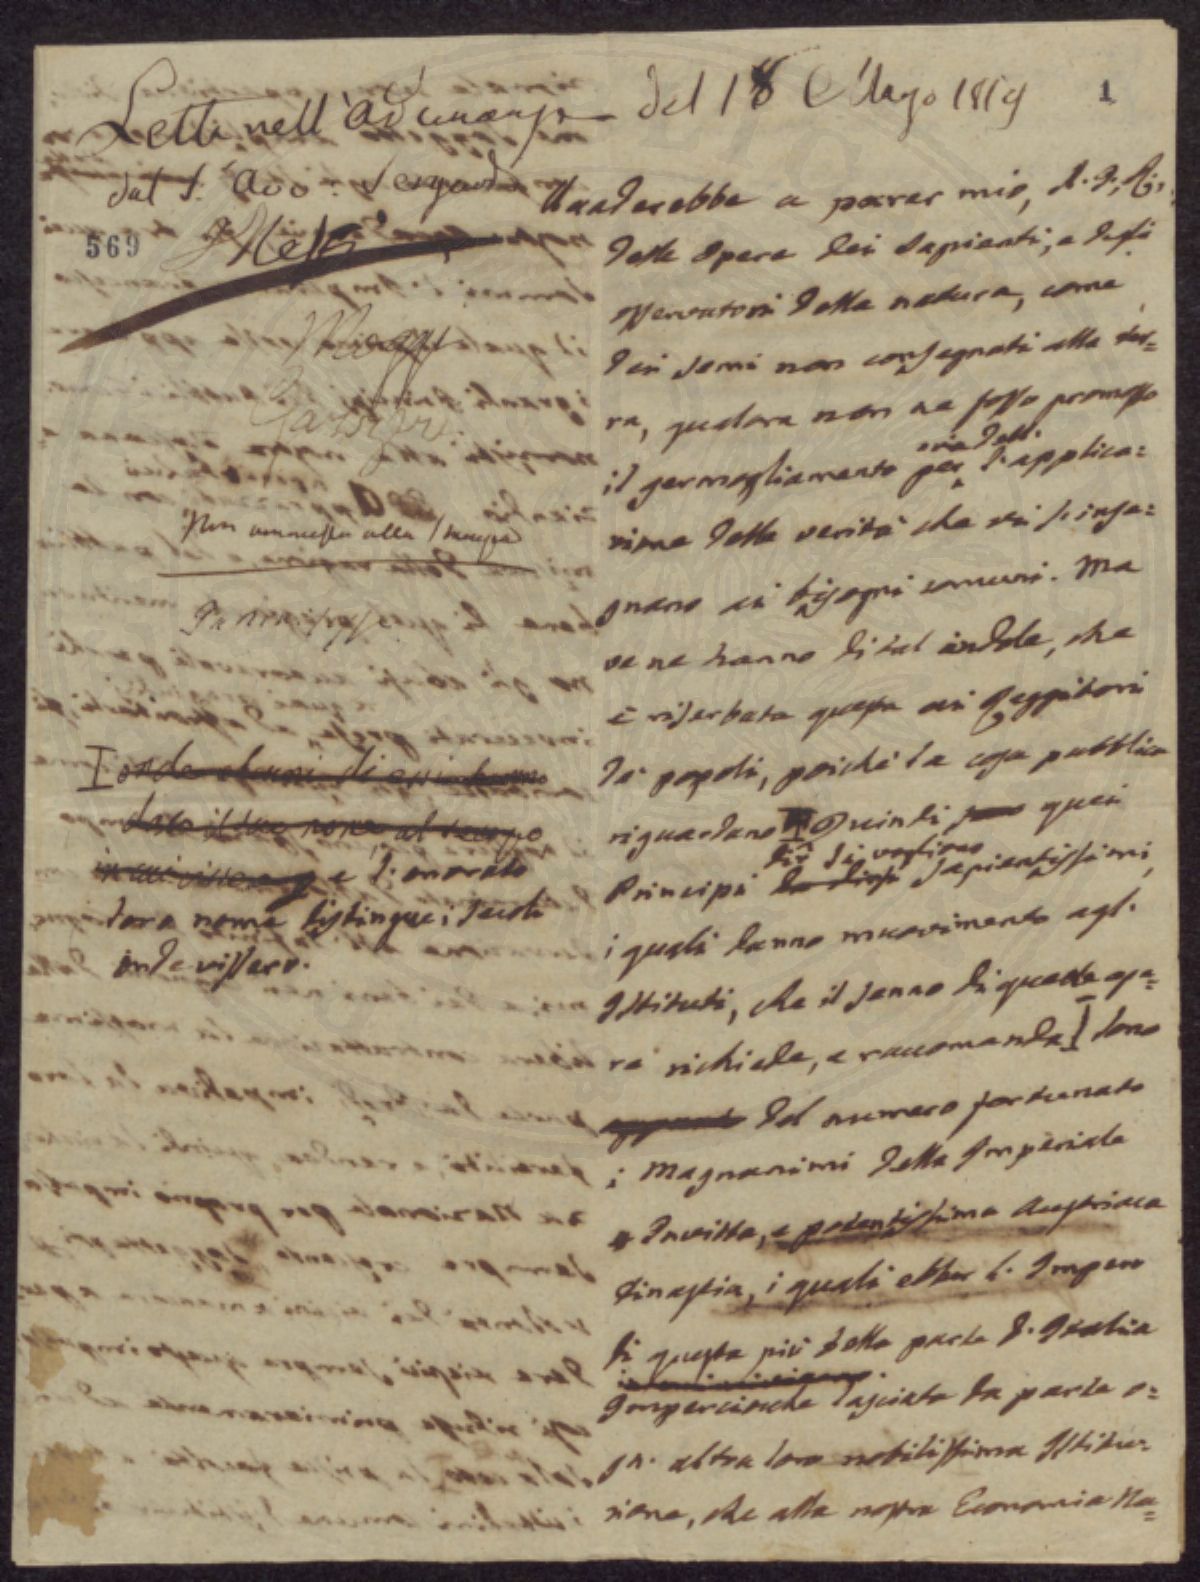 Letta nell'adunanza del 18 Maggio 1819
1
dal S. Avv.
569
Non ammessa alla Stampa
I onde alcuni di essi hanno
dato il suo nome al tempo
in cui vissero e l'onorato
loro nome distingue i secoli
in cui vissero.
Accaderebbe a parer mio,
delle opere dei sapienti, e degli
osservatori della natura, come
dei semi non consegnati alla ter=
ra, qualora non ne fosse promosso
il germogliamento per l'applica=
zione delle verità che vi s'inse=
gnano ai bisogni comuni. Ma
ve ne hanno di tal indole, che
è riserbata questa ai Reggitori
de' popoli, poichè la cosa pubblica
riguardano. Quindi quei
Principi sapientissimi,
i quali danno muovimento agl'
Istituti, che il senno di queste ope=
re richiede, e raccomanda I sono
del numero fortunato
i Magnanimi della Imperiale
Invitta, e potentissima Austriaca
Dinastia, i quali ebber l'Impero
di questa più bella parte d'Italia
Imperciocchè lasciata da parte o=
gn'altra loro nobilissima Istitu=
zione, che alla nostra Economia Na=